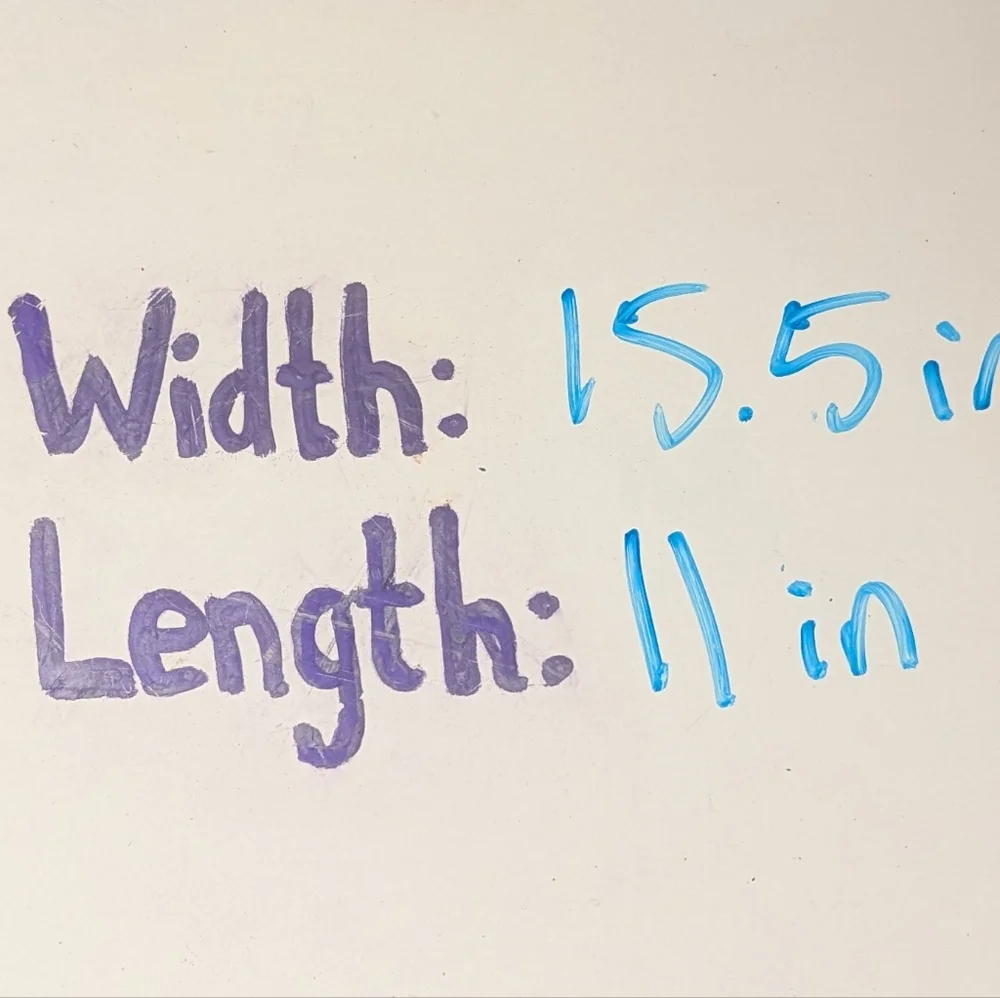 Width: 15.5 in
Length: 11 in